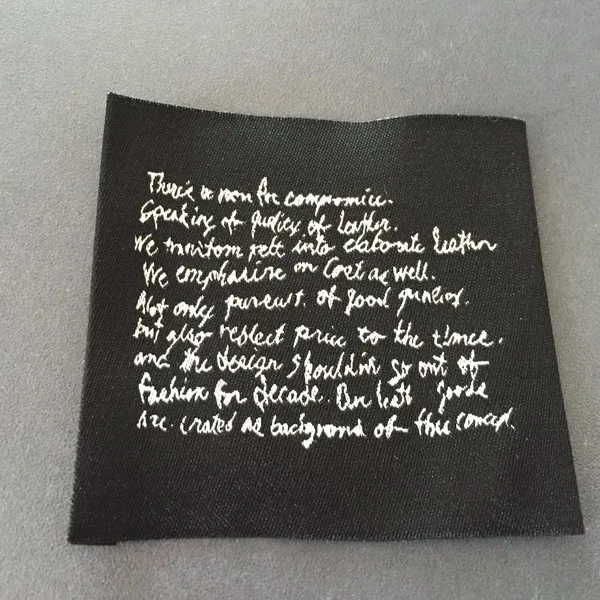 There's no room for compromise.
Speaking of quality of leather.
We transform pelt into elaborate leather
We emphasize on Cost as well.
Not only pursuit of good quality.
but also reflect price to the times.
and the design shouldn't go out of
fashion for decade. Our goods
are created as background of this concept.